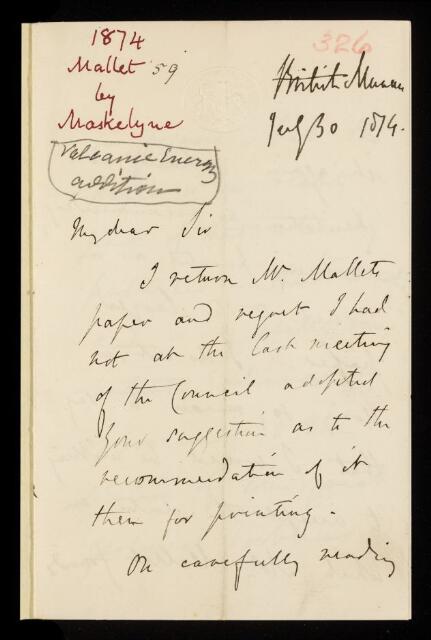 1874
326
Mallet 59
by
Maskelyne
British Museum
July 30 1874.
Volcanic Energy
addition
My dear Sir
I return Mr. Mallets
paper and regret I had
not at the last meeting
of the Council adopted
your suggestion as to the
recommendation of it
then for printing.
On carefully reading